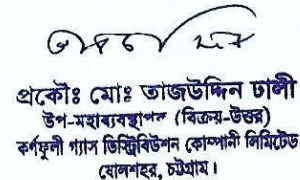 প্রকৌঃ মোঃ তাজউদ্দিন ঢালী
উপ-মহাব্যবস্থাপক (বিক্রয়-উত্তর)
কর্ণফুলী গ্যাস ডিস্ট্রিবিউশন কোম্পানী লিমিটেড
ষোলশহর, চট্টগ্রাম।